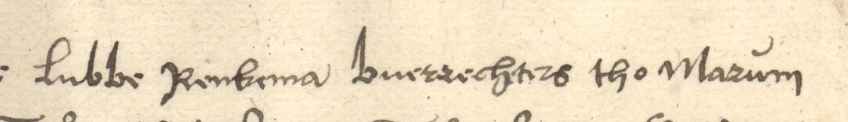 Lubbe Renkema buerrechters tho Marum